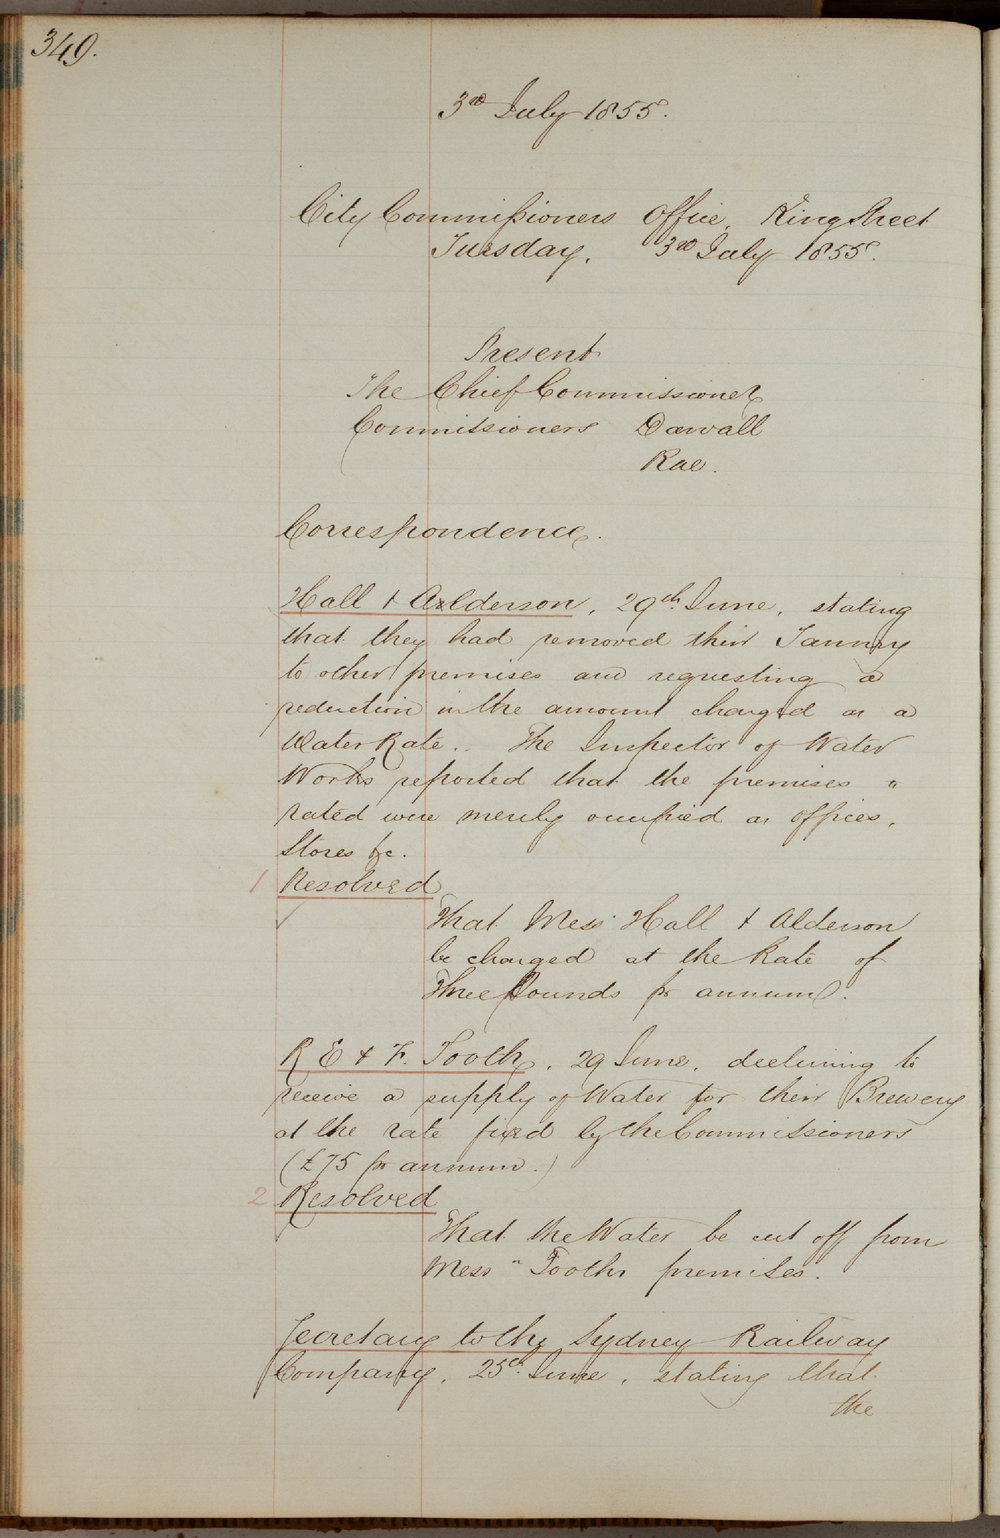 349.
3rd July 1855.
City Commissioners Office, King Street
Tuesday, 3rd July 1855.
Present
The Chief Commissioner
Commissioners Darvall
Rae.
Correspondence.
Hall & Alderson, 29th June, stating
that they had removed their Tannery
to other premises and requesting a
reduction in the amount charged as a
Water Rate.. The Inspector of Water
Works reported that the premises "
rated were merely occupied as offices,
Stores &c.
1 Resolved
That Mess Hall & Alderson
be charged at the Rate of
Three Pounds pr annum.
R E & F. Tooth, 29 June, declining to
receive a supply of Water for their Brewery
at the rate fixed by the Commissioners
(£75 pr annum.)
2 Resolved
That the Water be cut off from
Mess " Tooths premises.
Secretary to the Sydney Railway
Company, 25th June, stating that
the